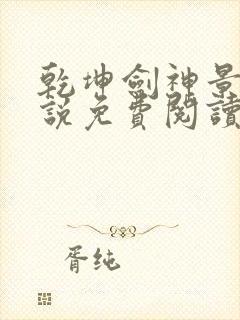 乾坤劍神景
說免費閱讀
胥纯